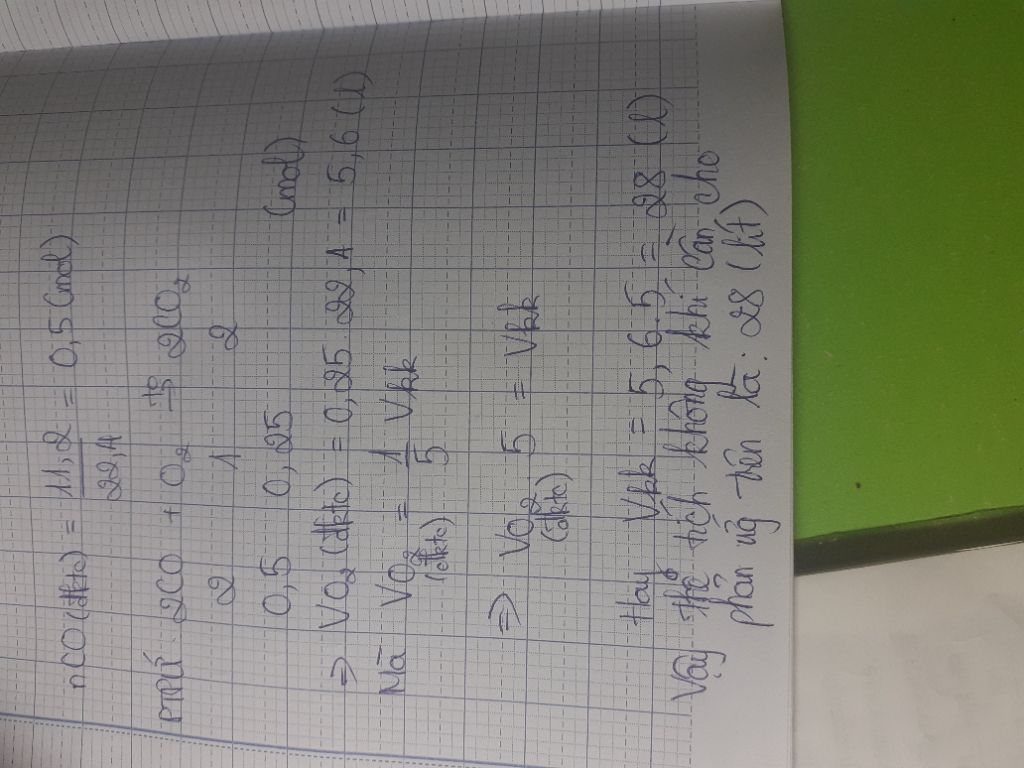 nCO (đktc) = 11,2 / 22,4 = 0,5 (mol)
PTPƯ 2CO + O₂ →(t°) 2CO₂
2 1 2
0,5 0,25 (mol)
=> VO₂ (đktc) = 0,25 . 22,4 = 5,6 (l)
Mà VO₂ (đktc) = 1/5 Vkk
=> VO₂ (đktc) . 5 = Vkk
Hay Vkk = 5,6 . 5 = 28 (l)
Vậy thể tích không khí cần cho
phản ứng trên là : 28 (lít)